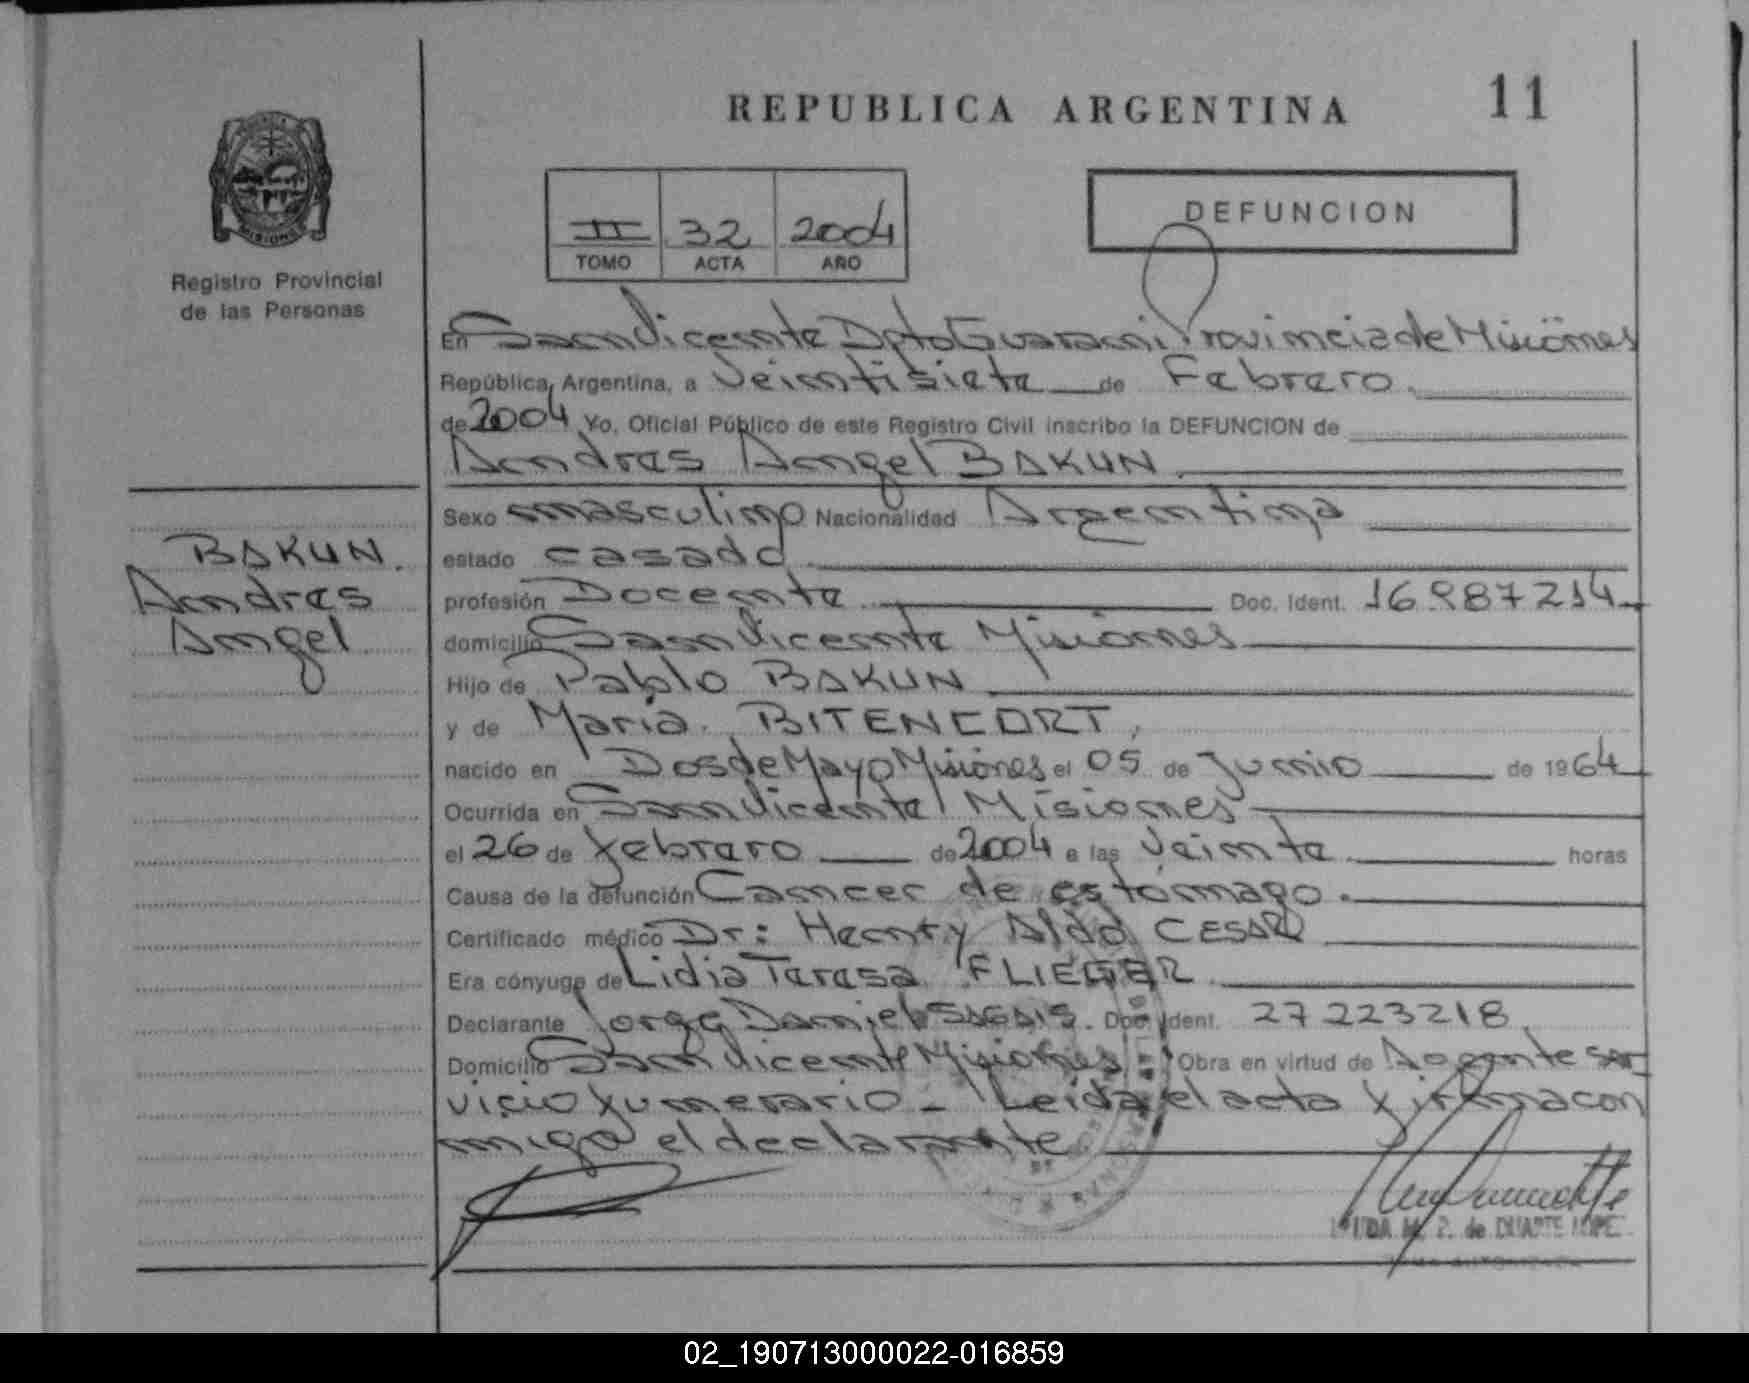 REPUBLICA ARGENTINA 11
MISIONES
Registro Provincial
de las Personas
II 32 2004
TOMO ACTA AÑO
DEFUNCION
En San Vicente Dpto Guarani Provincia de Misiones
República Argentina, a Veintisiete de Febrero
de 2004 Yo, Oficial Público de este Registro Civil inscribo la DEFUNCION de
Andres Angel BAKUN
BAKUN.
Andres
Angel
Sexo masculino Nacionalidad Argentina
estado casado
profesión Docente Doc. Ident. 16.987214
domicilio San Vicente Misiones
Hijo de Pablo BAKUN
y de Maria BITENCORT,
nacido en Dos de Mayo Misiones el 05 de Junio de 1964
Ocurrida en San Vicente Misiones
el 26 de febrero de 2004 a las Veinte horas
Causa de la defunción Cancer de estomago.
Certificado médico Dr: Henry Aldo CESAR
Era cónyuge de Lidia Teresa FLIEGER
Declarante Jorge Daniel Doc. Ident. 27223218
Domicilio San Vicente Misiones Obra en virtud de Agente ser
vicio funerario - Leida el acta firma con
migo el declarante
M. P. de DUARTE
02_190713000022-016859